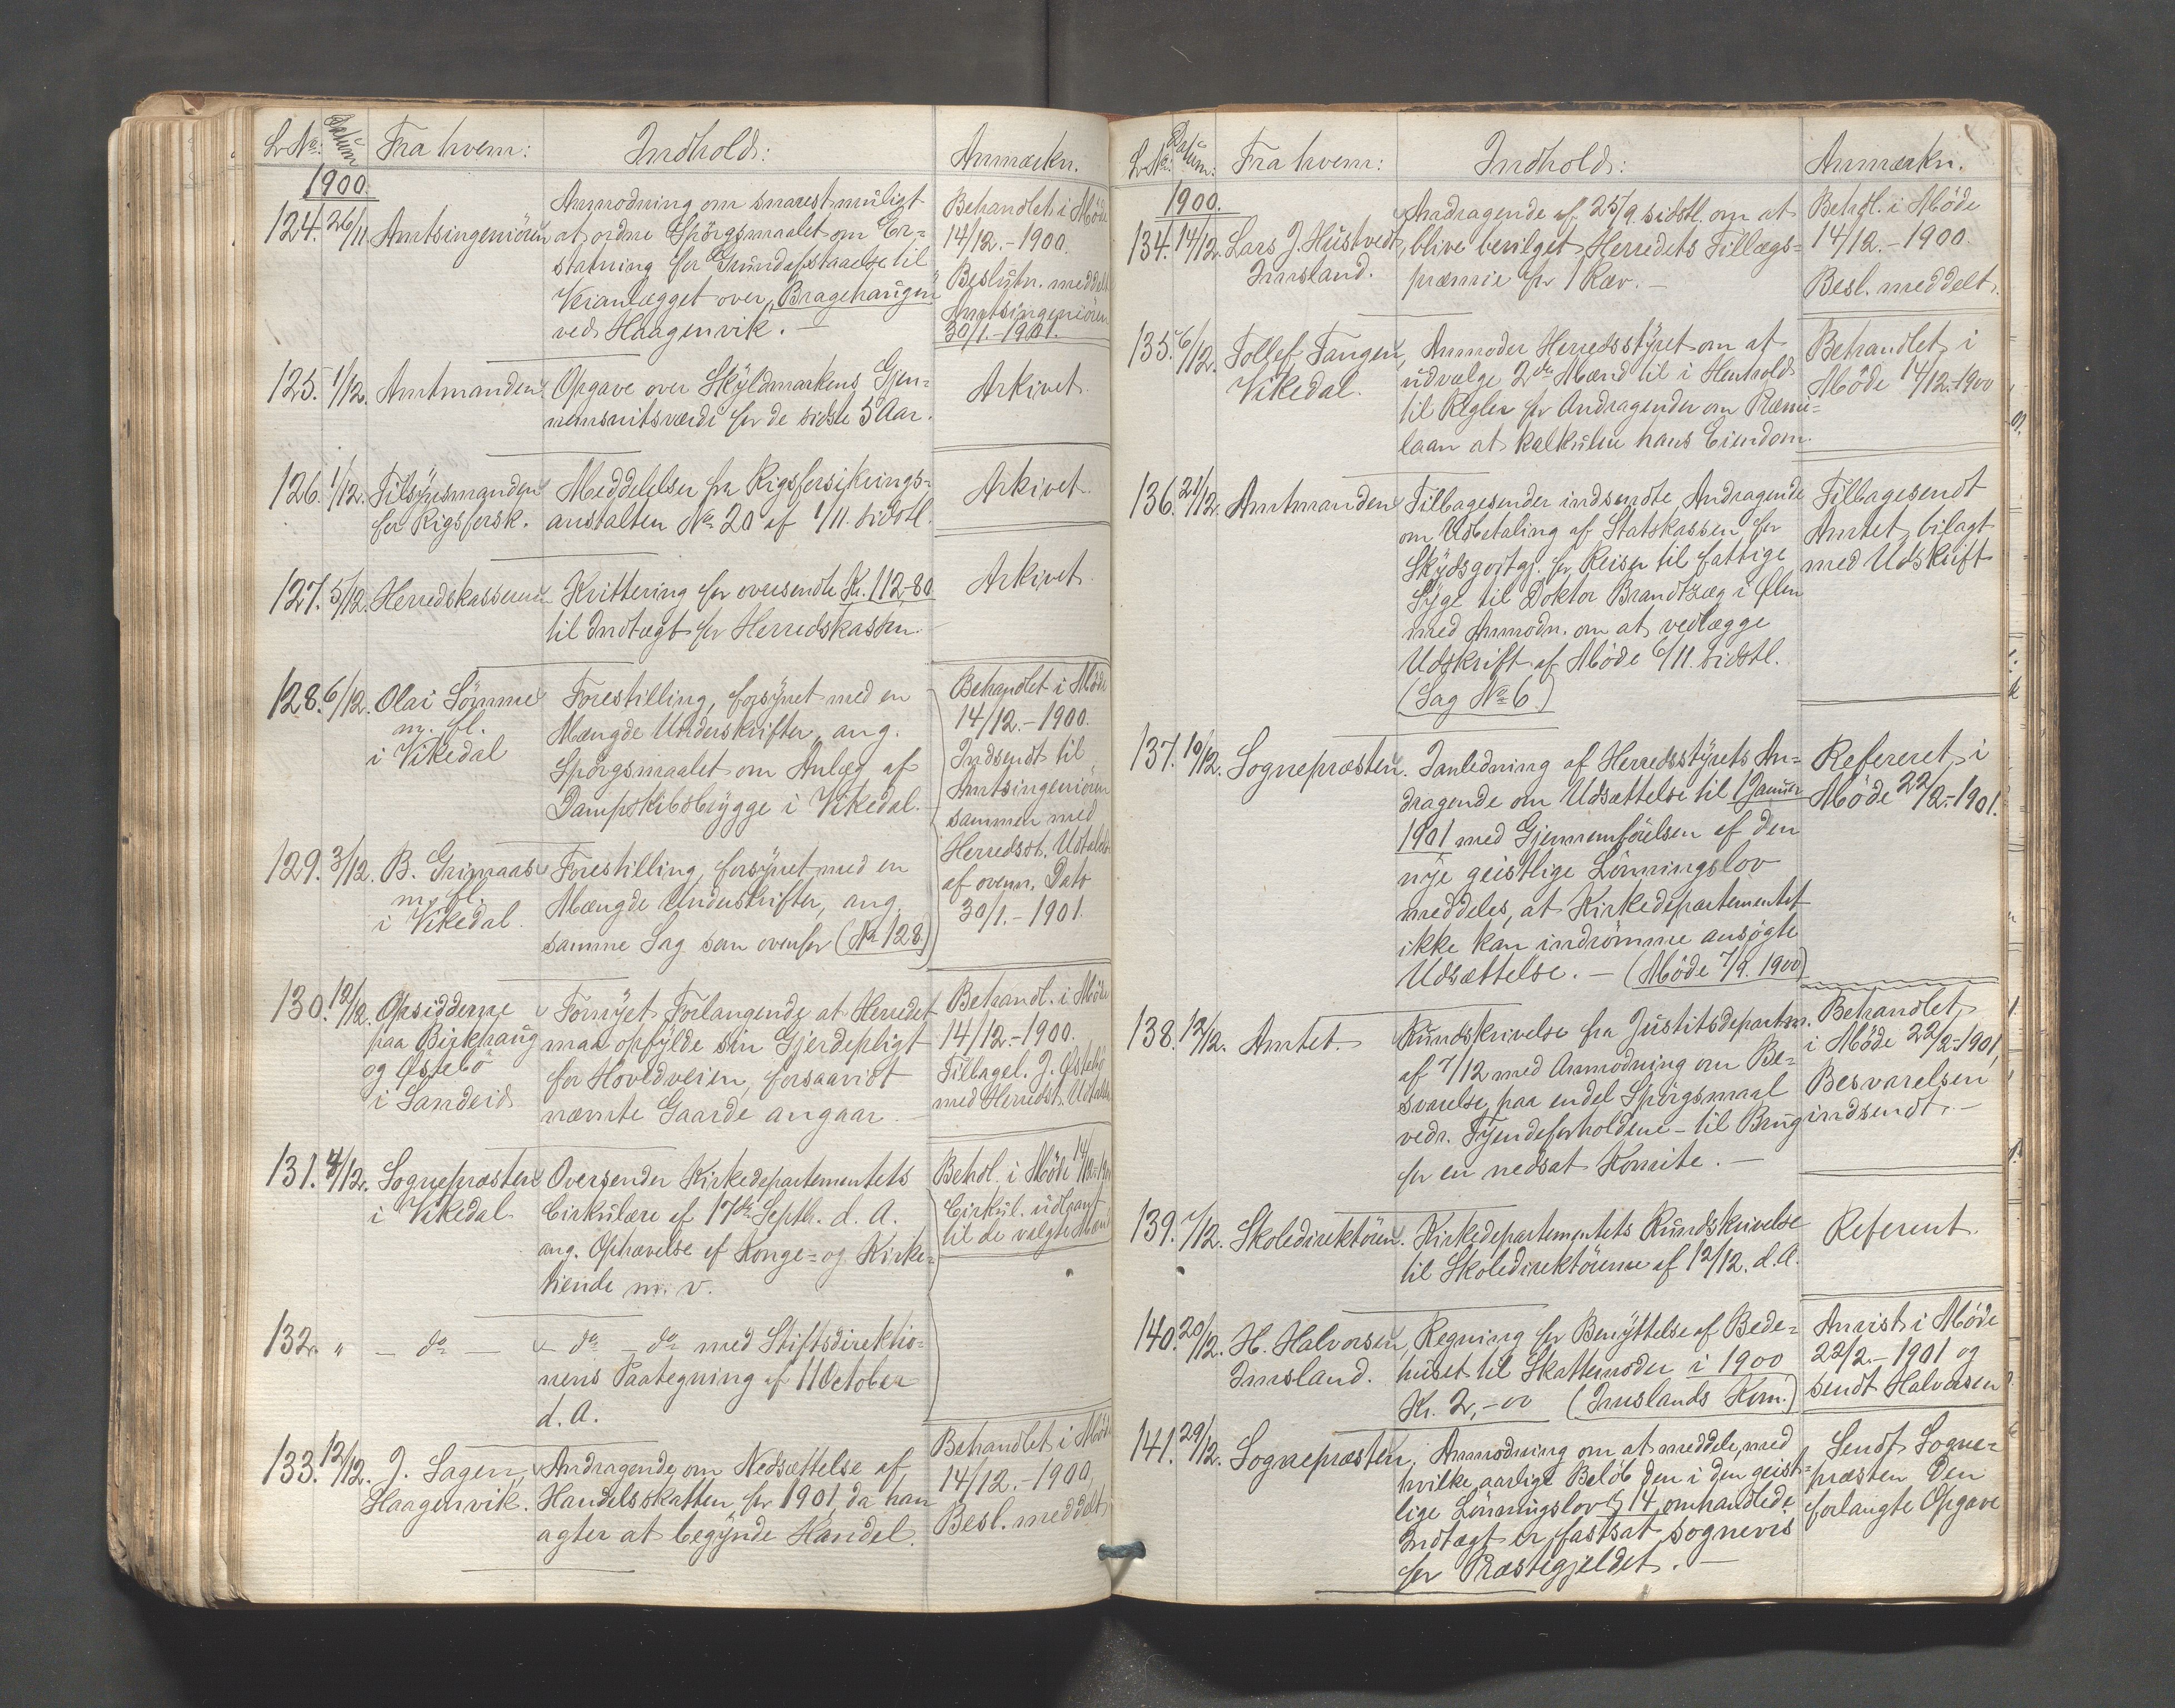 L. No: Datum Fra hvem: Indhold: Anmærkn.
1900.
124. 26/11. Amtsingeniören
Anmodning om snarest muligt
at ordne Spörgsmaalet om Er=
statning for Grundafstaaelse til
Veianlægget over "Bragehaugen"
ved Haagenvik. —
Behandlet i Möde
14/12. - 1900.
Beslutn. meddelt
Amtsingeniören
30/1. - 1901.
125. 1/12. Amtmanden
Opgave over Skyldmarkens Gjen=
nemsnitsværdi for de sidste 5 Aar.
Arkivet.
126. 1/12. Tilsynsmanden
for Rigsforsk.
Meddelelser fra Rigsforsikrings=
anstalten No 20 af 1/11. sidstl.
Arkivet.
127. 5/12. Herredskasseren
Kvittering for oversendte Kr. 112,80
til Indtægt for Herredskassen.
Arkivet.
128. 6/12. Olai Sömme
m. fl.
i Vikedal
Forestilling, forsynet med en
Mængde Underskrifter, ang.
Spörgsmaalet om Anlæg af
Dampskibsbrygge i Vikedal.
Behandlet i Möde
14/12. - 1900.
Indsendt til
Amtsingeniören
sammen med
Herredsst. Udtalelse
af ovenn. Dato
30/1. - 1901.
129. 3/12. B. Grimaas
m. fl.
i Vikedal.
Forestilling, forsynet med en
Mængde Underskrifter, ang.
samme Sag som ovenfor (No 128.)
130. 12/12. Opsidderne
paa Birkhaug
og Östebö
i Sandeid
Fornyet Forlangende at Herredet
maa opfylde sin Gjerdepligt
for Hovedveien, forsaavidt
nævnte Gaarde angaar
Behandl. i Möde
14/12. - 1900.
Tilbagel. J. Östebö
med Herredst. Udtalelse
131. 4/12. Sognepræsten
i Vikedal
Oversender Kirkedepartementets
Cirkulære af 17de Septb. d. A.
ang. Ophævelse af Konge= og Kirke=
tiende m. v.
Behdl. i Möde 14/12. 1900
Cirkul. udlaant
til de valgte Mænd
132. " — do —
— do — do med Stiftsdirektio=
nens Paategning af 11 October
d. A.
133. 12/12. J. Sagen,
Haagenvik.
Andragende om Nedsættelse af
Handelsskatten for 1901, da han
agter at begynde Handel.
Behandlet i Möde
14/12. - 1900,
Besl. meddelt
L. No: Datum: Fra hvem: Indhold: Anmærkn.
1900.
134. 14/12. Lars J. Hustvedt,
Imsland.
Andragende af 25/9. sidstl. om at
blive bevilget Herredets Tillægs=
præmie for 1 Ræv. —
Behdl. i Möde
14/12. - 1900.
Besl. meddelt.
135. 6/12. Tollef Tangen,
Vikedal.
Anmoder Herredsstyret om at
udvælge 2de Mænd til i Henhold
til Regler for Andragender om Præmie=
laan at kalkulere hans Eiendom.
Behandlet i
Möde 14/12.-1900
136. 21/12. Amtmanden
Tilbagesender indsendte Andragende
om Udbetaling af Statskassen for
Skydsgodtgj. for Reiser til fattige
Syge til Doktor Brandtzæg i Ølen
med Anmodn. om at vedlægge
Udskrift af Möde 6/11. sidstl.
(Sag No 6.)
Tilbagesendt
Amtet, bilagt
med Udskrift
137. 10/12. Sognepræsten.
I anledning af Herredsstyrets An=
dragende om Udsættelse til 1 Januar
1901 med Gjennemförelsen af den
nye geistlige Lönningslov
meddeles, at Kirkedepartementet
ikke kan indrömme ansögte
Udsættelse. — (Möde 7/9. 1900)
Refereret i
Möde 22/2.-1901.
138. 12/12. Amtet.
Rundskrivelse fra Justitsdepartm.
af 7/12 med Anmodning om Be=
svarelse paa endel Spörgsmaal
vedr. Tyendeforholdene - til Brug
for en nedsat Komite. —
Behandlet
i Möde 22/2.-1901,
Besvarelsen
indsendt. —
139. /12. Skoledirektören.
Kirkedepartementets Rundskrivelse
til Skoledirektörerne af 12/12. d. A.
Refereret.
140. 20/12. H. Halvorsen,
Imsland.
Regning for Benyttelse af Bede=
huset til Skattemöder i 1900
Kr. 2,-00 (Imslands Kom.)
Anvist i Möde
22/2. - 1901 og
sendt Halvorsen
141. 29/12. Sognepræsten,
Anmodning om at meddele, med
hvilke aarlige Belöb den i den geist=
lige Lönningslov § 14 omhandlede
Indtægt er fastsat sognevis
for Præstegjeldet. —
Sendt Sogne=
præsten den
forlangte Opgave